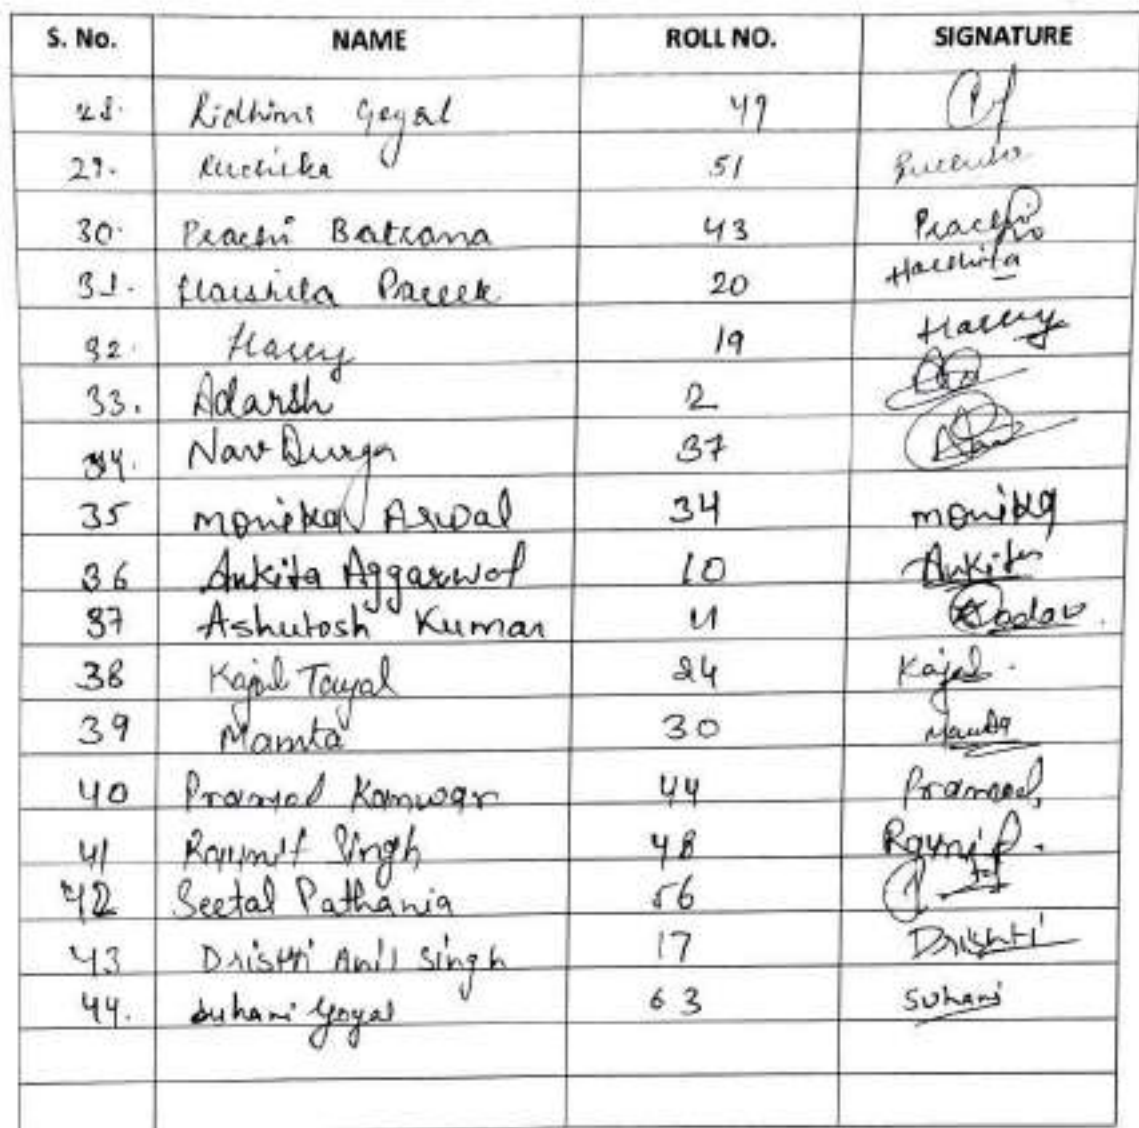 S. No. NAME ROLL NO. SIGNATURE
28. Ridhima Goyal 49
29. Ruchika 51 Ruchika
30. Prachi Batrana 43 Prachi
31. Harshita Pareek 20 Harshita
32. Harry 19 Harry
33. Adarsh 2
34. Nav Durga 37
35 Monika Aswal 34 Monika
36 Ankita Aggarwal 10 Ankita
37 Ashutosh Kumar 11
38 Kajal Tayal 24 Kajal.
39 Mamta 30 Mamta
40 Pramod Kanwar 44 Pramod
41 Rajnit Singh 48 Rajnit.
42 Seetal Pathania 56
43 Dristti Anil Singh 17 Drishti
44. Suhani Goyal 63 Suhani